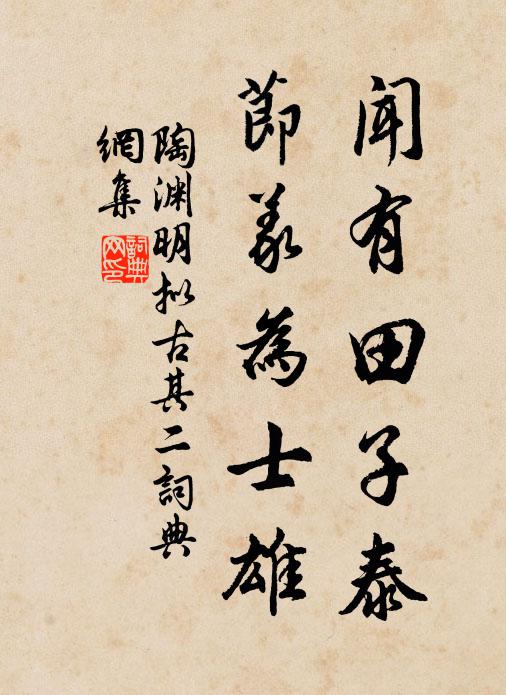 聞有田子泰
節義為士雄
陶渊明拟古其二詞典
網集
詞典
网印